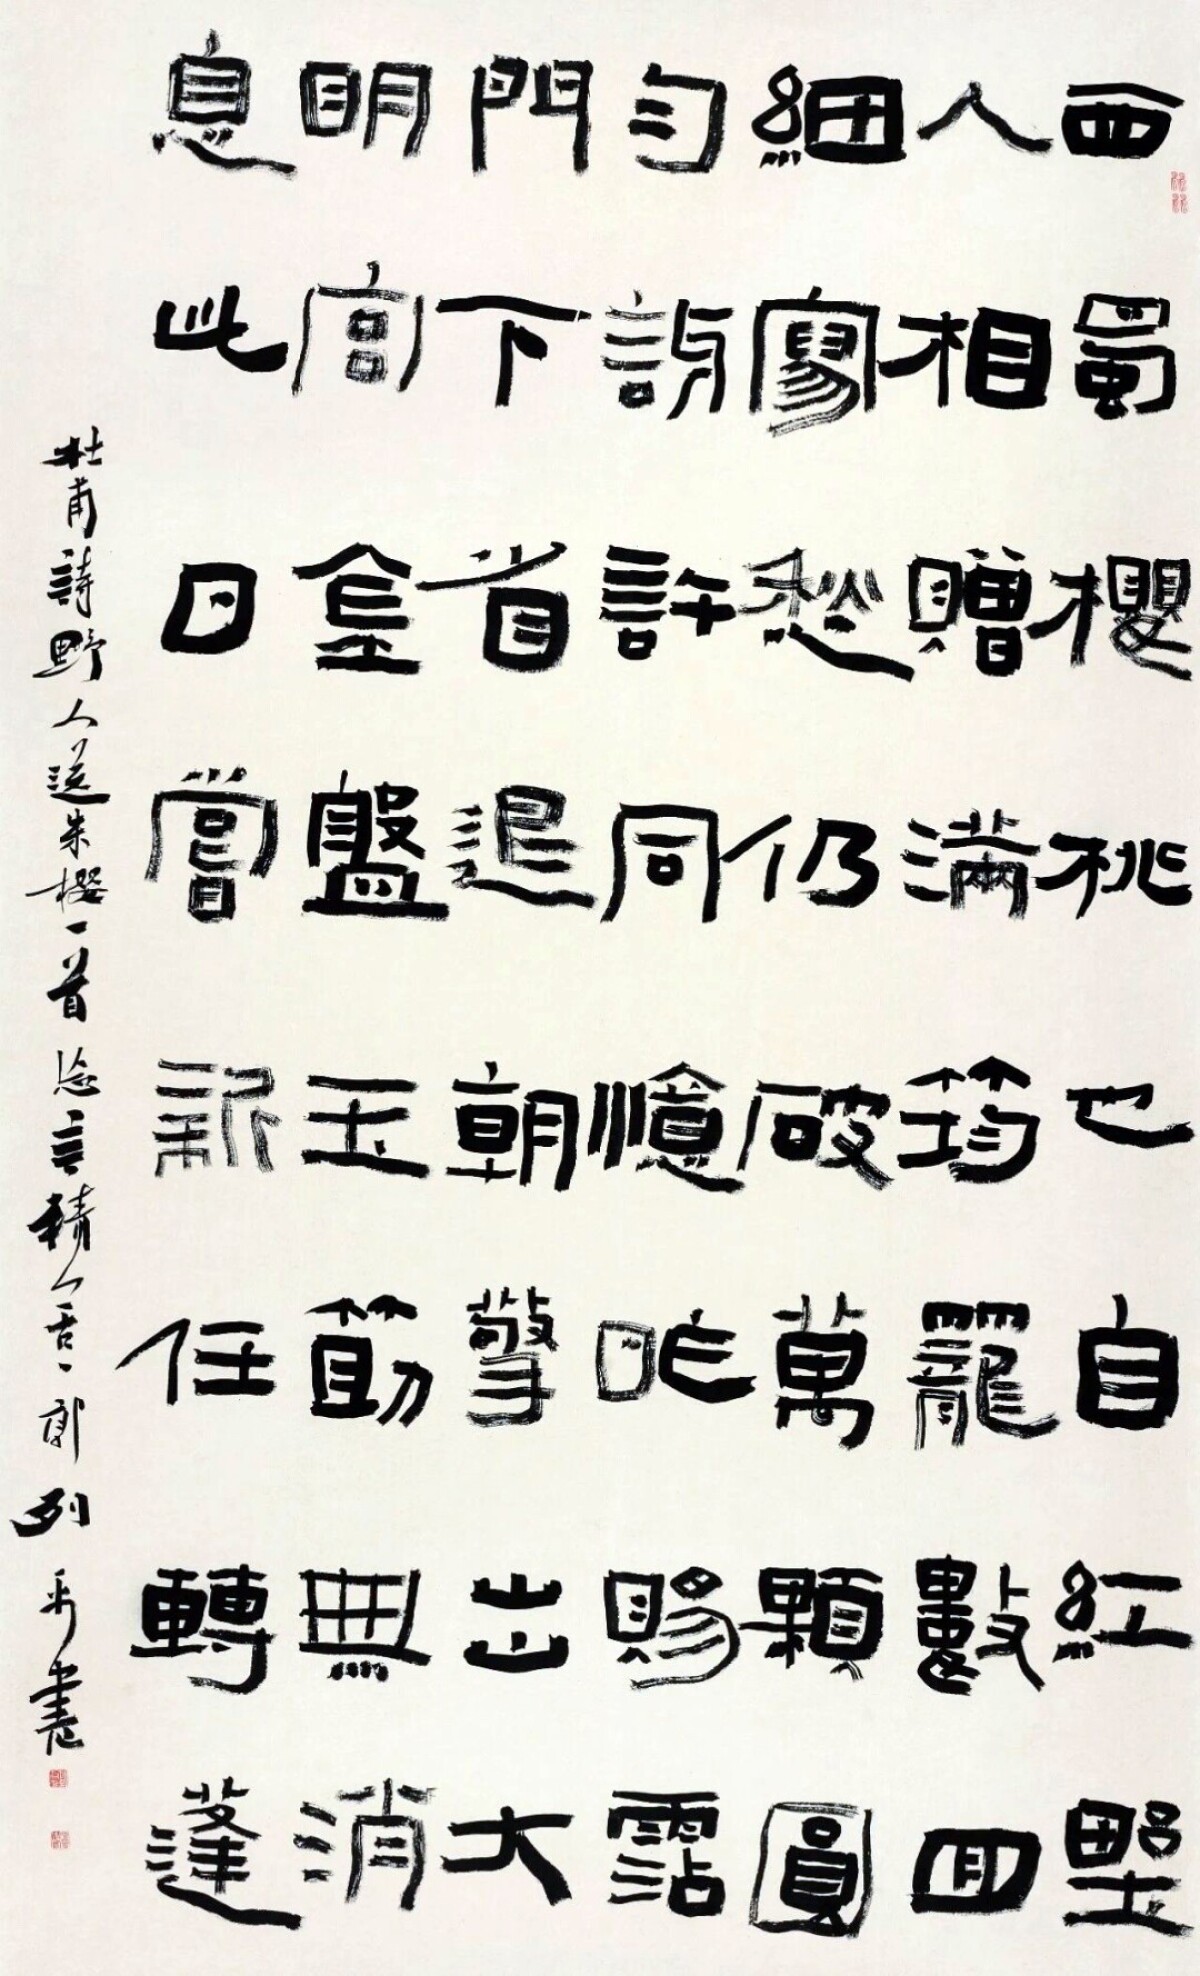 西蜀櫻桃也自紅野
人相贈滿筠籠數回
細寫愁仍破萬顆圓
勻訝許同憶昨賜霑
門下省退朝擎出大
明宮金盤玉筯無消
息此日嘗新任轉蓬
杜甫詩野人送朱櫻一首 言 郭列平書